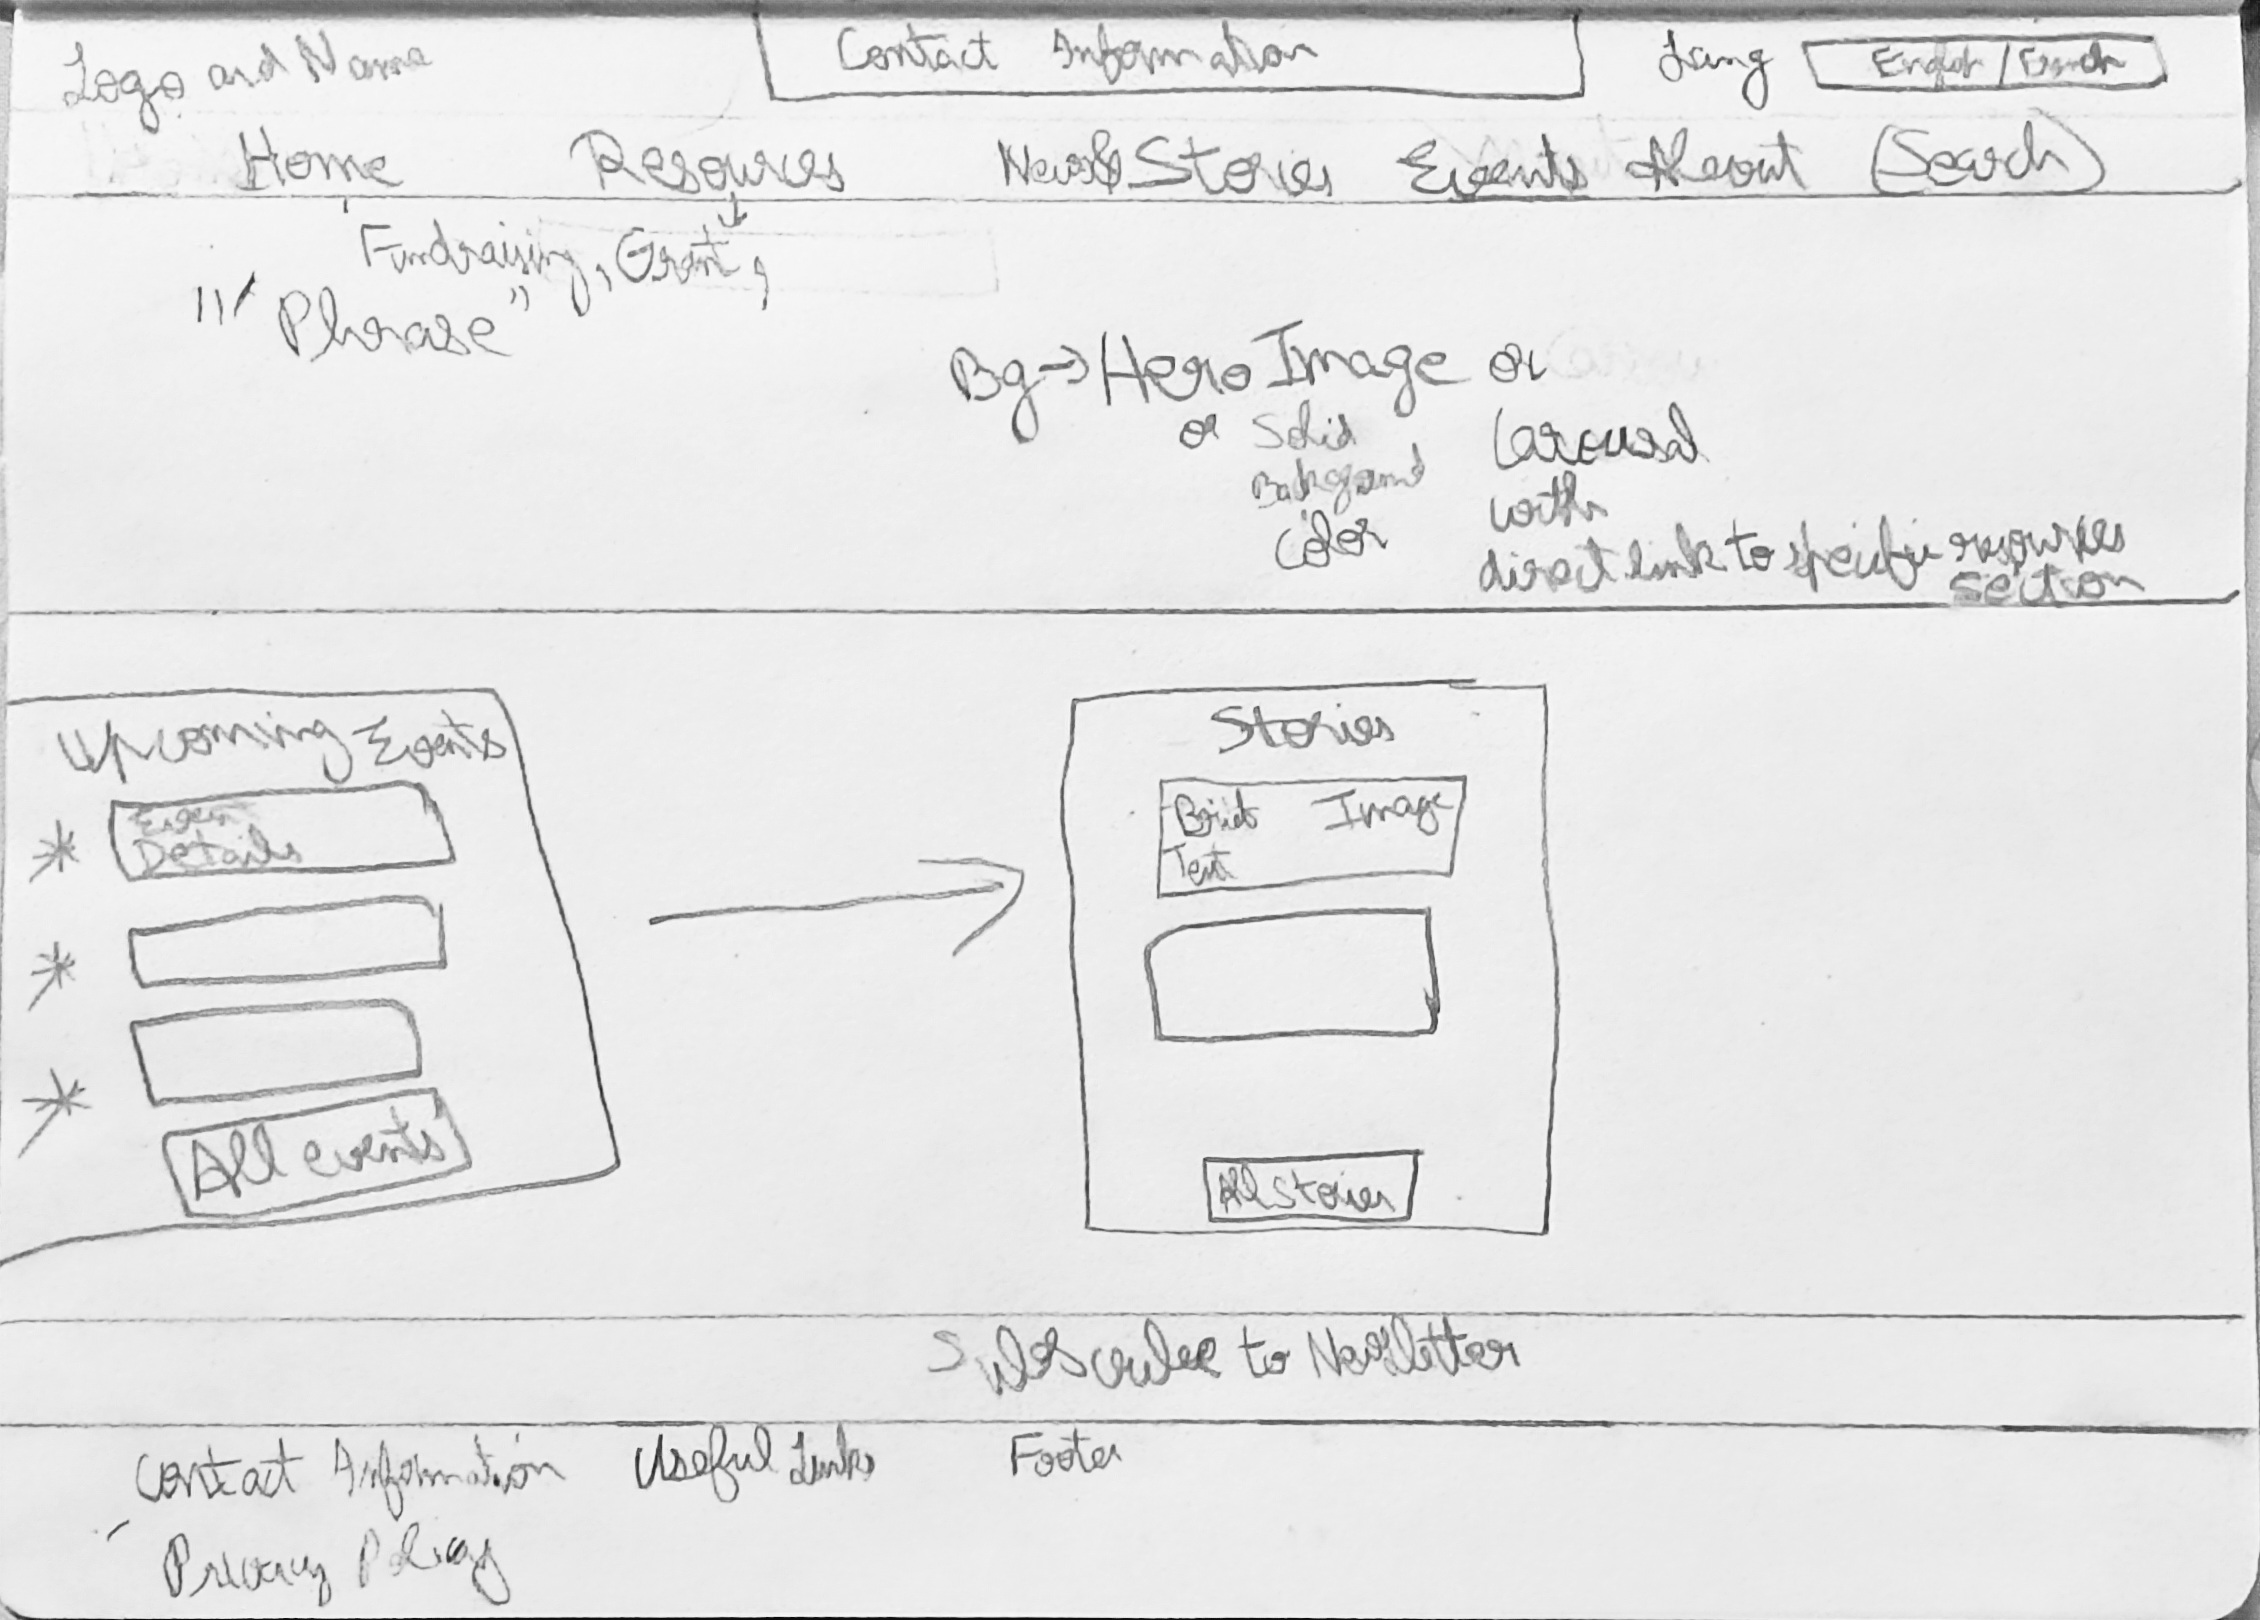 Logo and Name
Contact Information
Lang English / French
Home Resources News & Stories Events About (Search)
Fundraising, Grant,
"Phrase"
Bg → Hero Image or
or Solid
Background
Color
Carousal
with
direct link to specific resources
section
Upcoming Events
Event
Details
All events
Stories
Brief Image
Text
All Stories
Subscribe to Newsletter
Contact Information Useful Links Footer
Privacy Policy